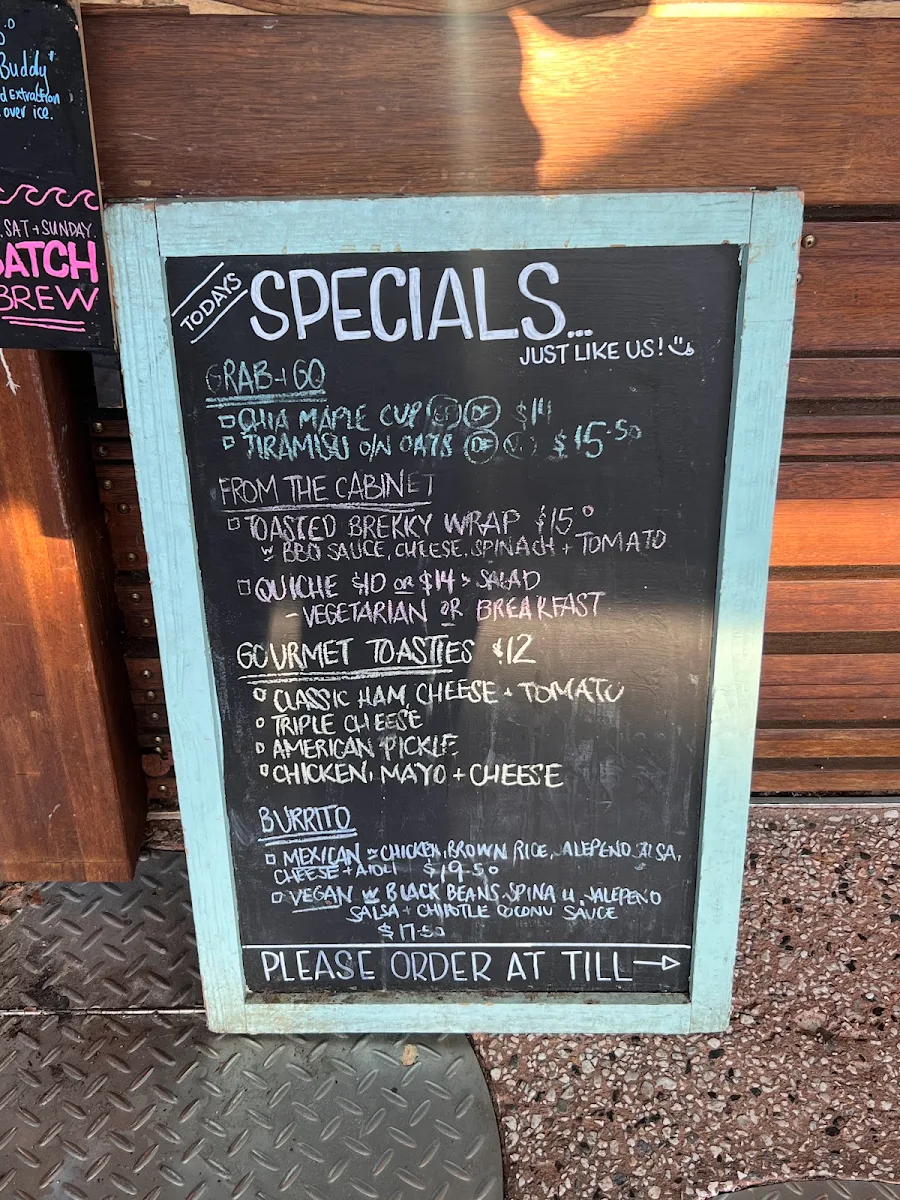 Buddy"
over ice.
SAT + SUNDAY.
BATCH
BREW
TODAYS
SPECIALS...
JUST LIKE US!
GRAB + GO
CHIA MAPLE CUP GF DF $14
TIRAMISU O/N OATS DF $15.50
FROM THE CABINET
TOASTED BREKKY WRAP $15.0
W BBQ SAUCE, CHEESE, SPINACH + TOMATO
QUICHE $10 OR $14 > SALAD
- VEGETARIAN OR BREAKFAST
GOURMET TOASTIES $12
CLASSIC HAM, CHEESE + TOMATO
TRIPLE CHEESE
AMERICAN PICKLE
CHICKEN, MAYO + CHEESE
BURRITO
MEXICAN W CHICKEN, BROWN RICE, JALEPENO SALSA,
CHEESE + AIOLI $19.50
VEGAN W BLACK BEANS, SPINA H, JALEPENO
SALSA + CHIPOTLE COCONU SAUCE
$17.50
PLEASE ORDER AT TILL →